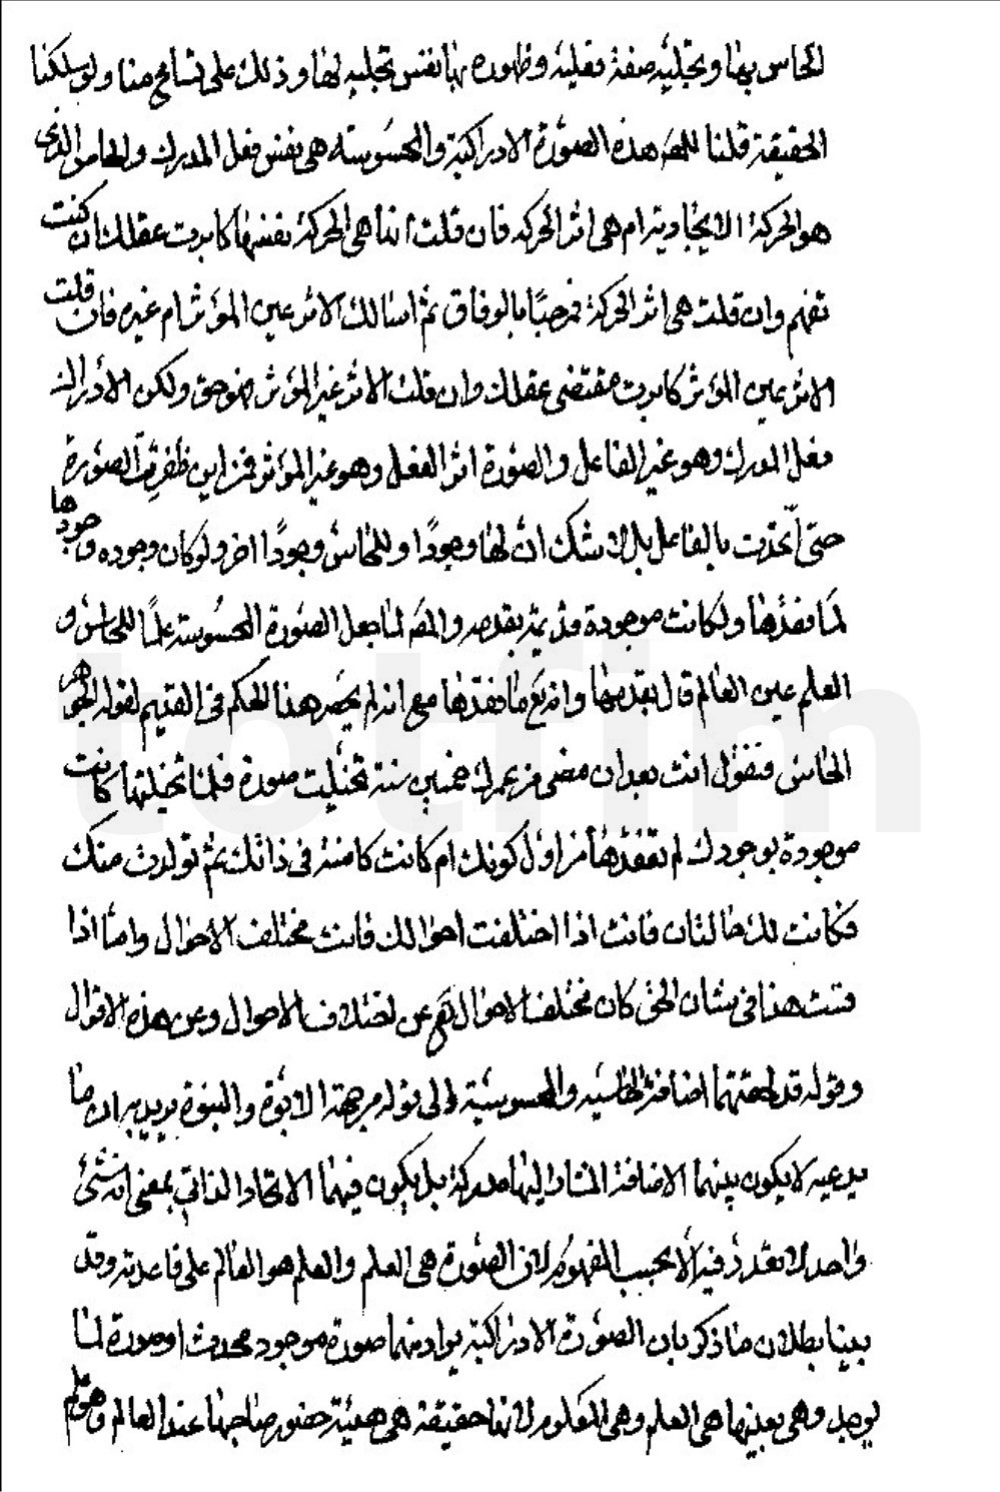 الحاس بها وتجليه صفة فعلية وظهوره بها نفس تجليه لها وذلك على تسامح منا ولو سلكنا
الحقيقة قلنا للمصـ هذه الصورة الادراكية والمحسوسة هي نفس فعل المدرك والحاس الذي
هو الحركة الايجادية ام هي اثر الحركة فان قلت انها هي الحركة نفسها كابرت عقلك ان كنت
تفهم وان قلت هي اثر الحركة فمرحبًا بالوفاق ثم اسألك الاثر عين المؤثر ام غيره فان قلت
الاثر عين المؤثر كابرت مقتضى عقلك وان قلت الاثر غير المؤثر فهو حق ولكن الادراك
فعل المدرك وهو غير الفاعل والصورة اثر الفعل وهو غير المؤثر فمن اين ظفرت الصورة
حتى اتحدت بالفاعل بل لا شك ان لها وجودًا وللحاس وجودًا اخر ولو كان وجوده وجودها
لما فقدها ولكانت موجودة قديمة بقدمه والمصـ لما جعل الصورة المحسوسة علمًا للحاس و
العلم عين العالم قال بقدمها وانه تع ما فقدها مع انه لم يخص هذا الحكم في القديم لقوله الجوهر
الحاس فنقول انت بعد ان مضى من عمرك خمسين سنة تخيلت صورة فلما تخيلتها كانت
موجودة بوجودك لم تفقدها من اول كونك ام كانت كامنة في ذاتك ثم تولدت منك
فكانت لك حالتان فانت اذا اختلفت احوالك فانت مختلف الاحوال واما اذا
فتت هذا في شان الحق كان مختلف الاحوال تع عن اختلاف الاحوال وعن هذه الاقوال
وقوله قد لحقتهما اضافة الحاسية والمحسوسية الى قوله من جهة الابوة والبنوة يريد به ان ما
يدعيه لا يكون بينهما الاضافة المشار اليها مدركة بل يكون فيهما الاتحاد الذاتي بمعنى انه شئ
واحد لا تعدد فيه الا بحسب المفهوم لان الصورة هي العلم والعلم هو العالم على قاعدته وقد
بينا بطلان ما ذكر بان الصورة الادراكية يراد منها صورة موجود محدث او صورة لما
يوجد وهي بعينها هي العلم وهي المعلوم لانها حقيقة هي هيئة حضور صاحبها عند العالم وهو